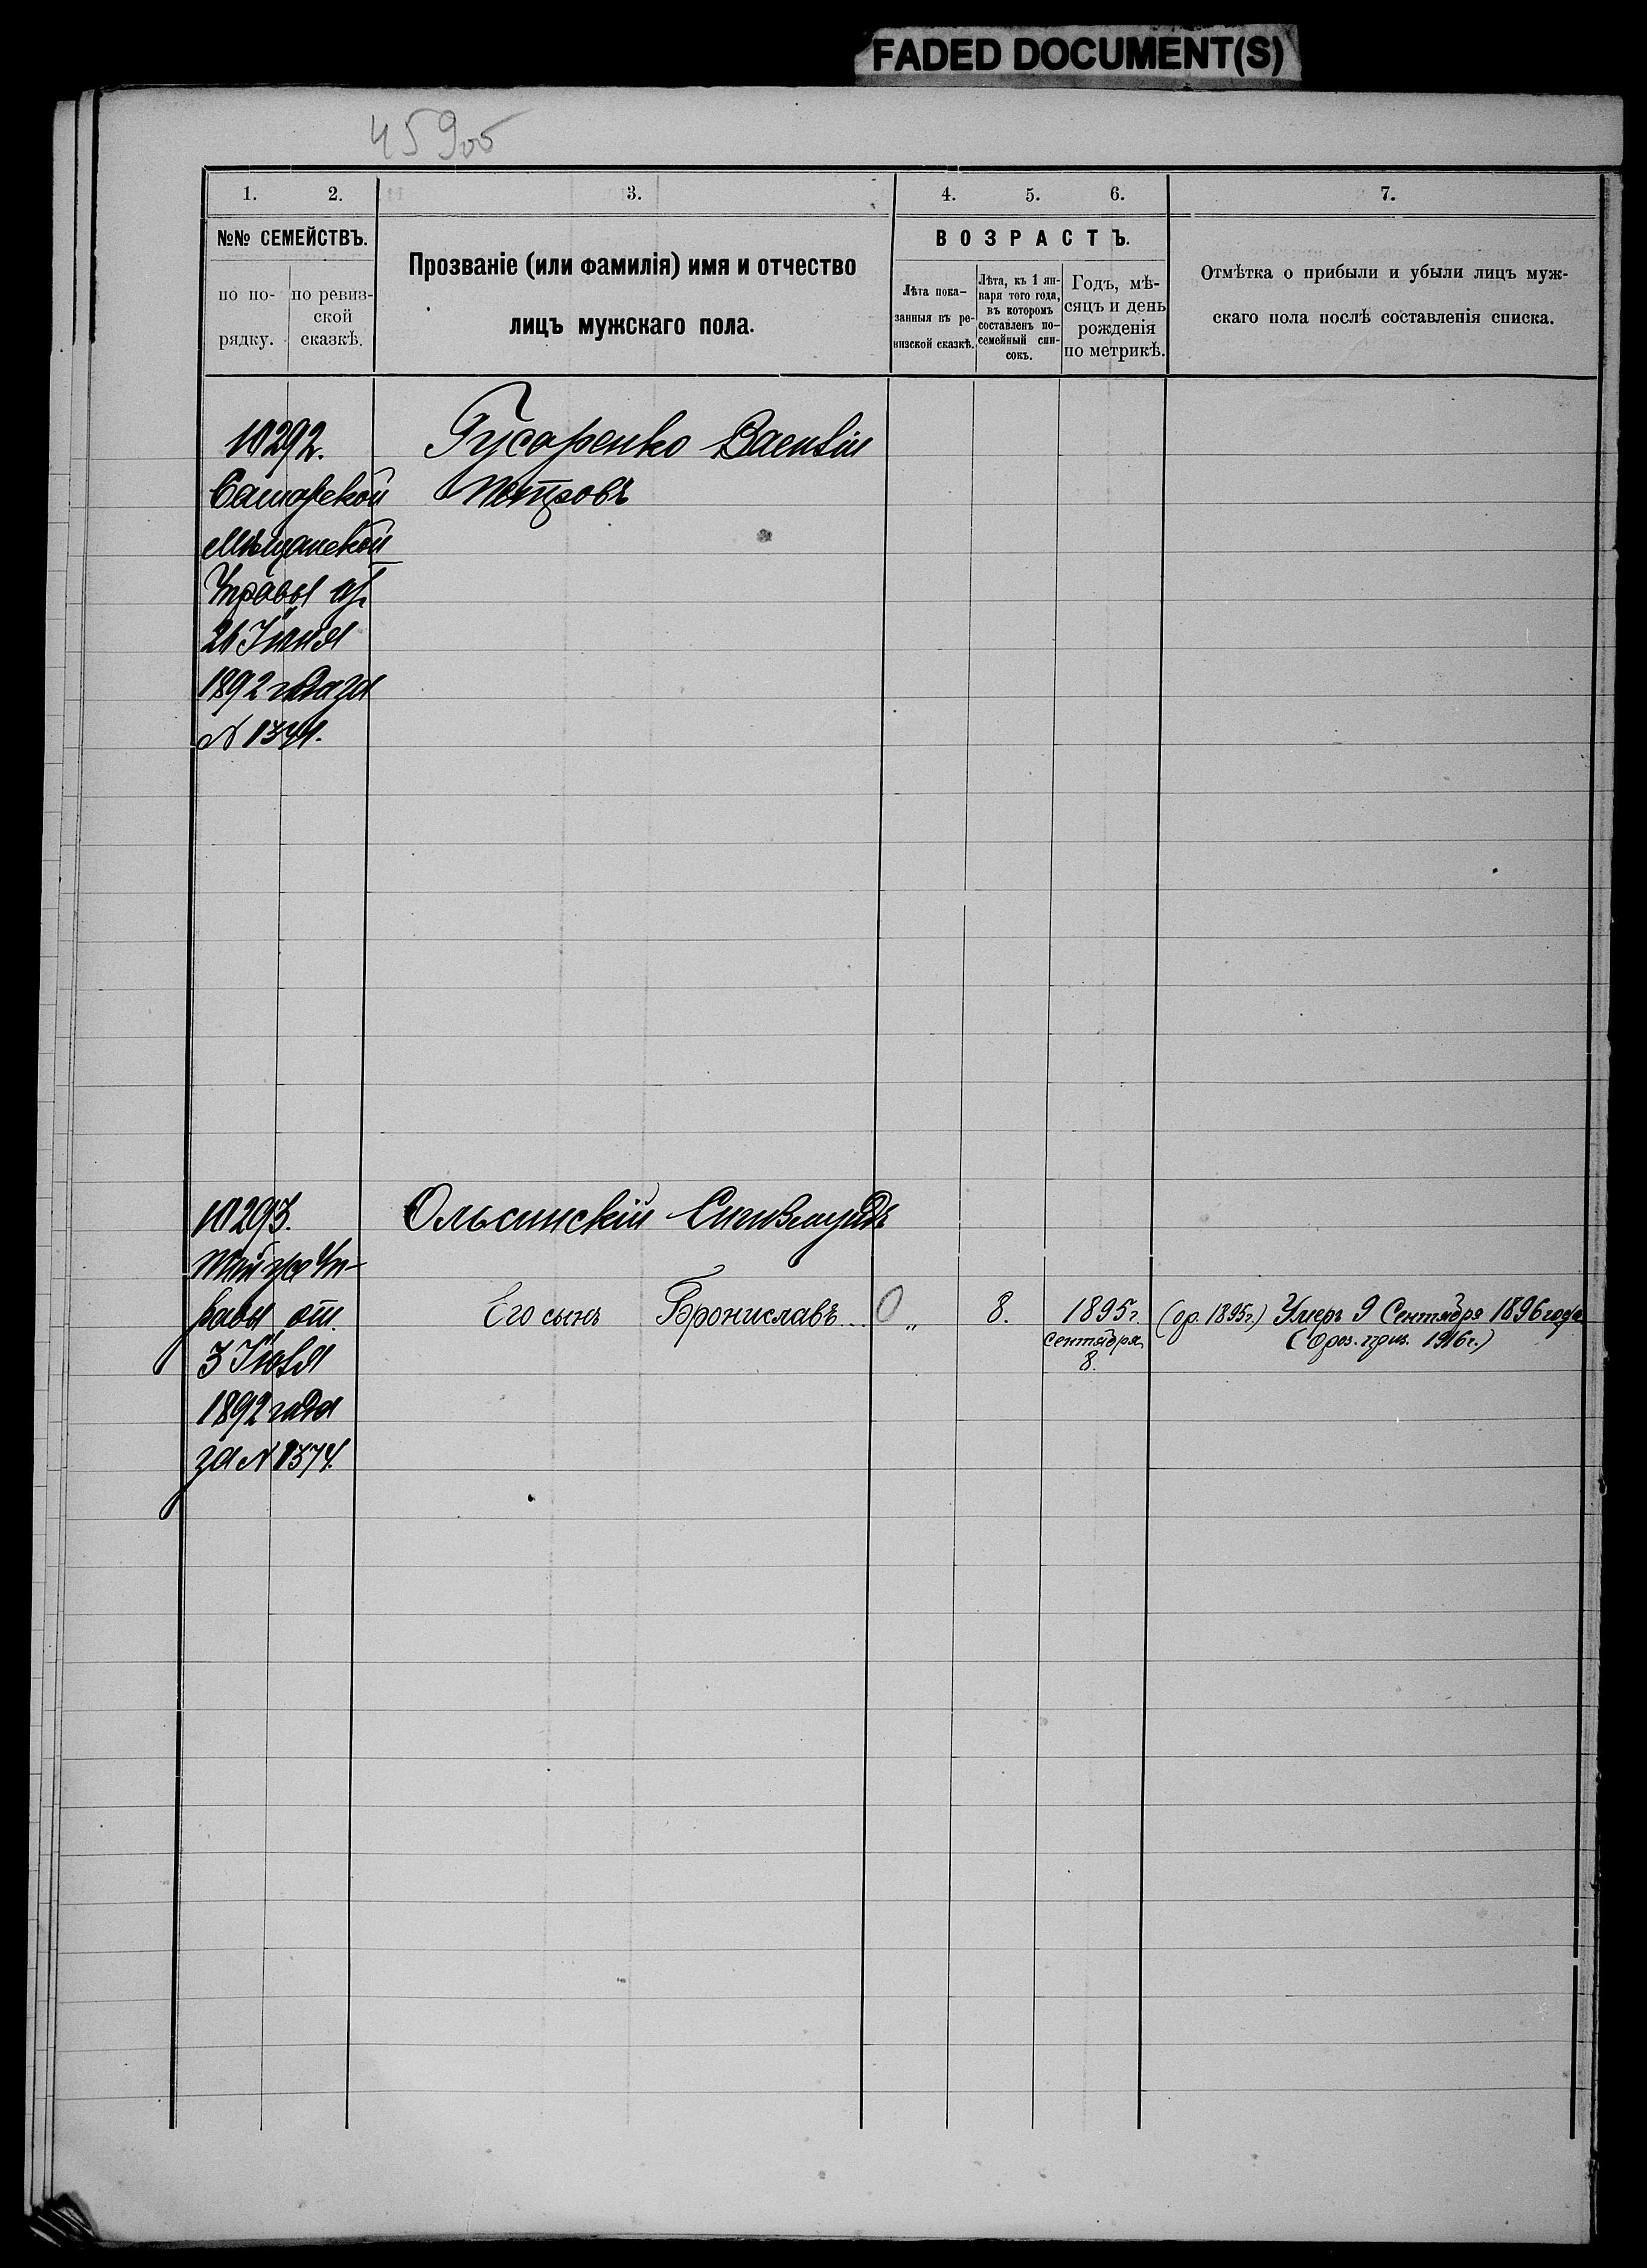 FADED DOCUMENT(S)
45900
1. 2. 3. 4. 5. 6. 7.
№№ СЕМЕЙСТВЪ.
по по-
рядку.
по ревиз-
ской
сказкѣ.
Прозваніе (или фамилія) имя и отчество
лицъ мужскаго пола.
ВОЗРАСТЪ.
Лѣта пока-
занныя въ ре-
визской сказкѣ.
Лѣта, къ 1 ян-
варя того года,
въ которомъ
составленъ по-
семейный спи-
сокъ.
Годъ, мѣ-
сяцъ и день
рожденія
по метрикѣ.
Отмѣтка о прибыли и убыли лицъ муж-
скаго пола послѣ составленія списка.
10292.
Самарской
Мѣщанской
Управы от
1892 года за
Гусаренко Василій
Петровъ
10293.
той же Уп-
равы от
3 Іюля
1892 года
за № 1374.
Ольсинскій Сигизмундъ
Его сынъ Брониславъ... 0 „ 8. 1895 г.
Сентября
8.
(ор. 1895 г.) Умеръ 9 Сентября 1896 года
1916 г.)